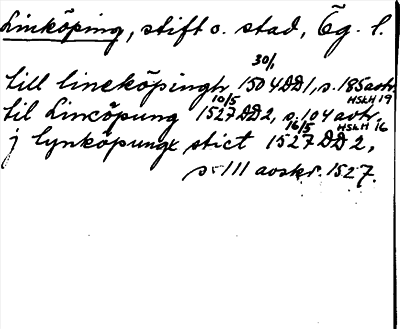 Linköping, stift o. stad, Ög. l.
till lineköpingh 30/1 1504 DD 1, s. 185 avtr. HSkH 19
til Lincöpung 10/5 1527 DD 2, s. 104 avtr. HSkH 16
j lynköpungx stict 16/5 1527 DD 2,
s. 111 avskr. 1527.